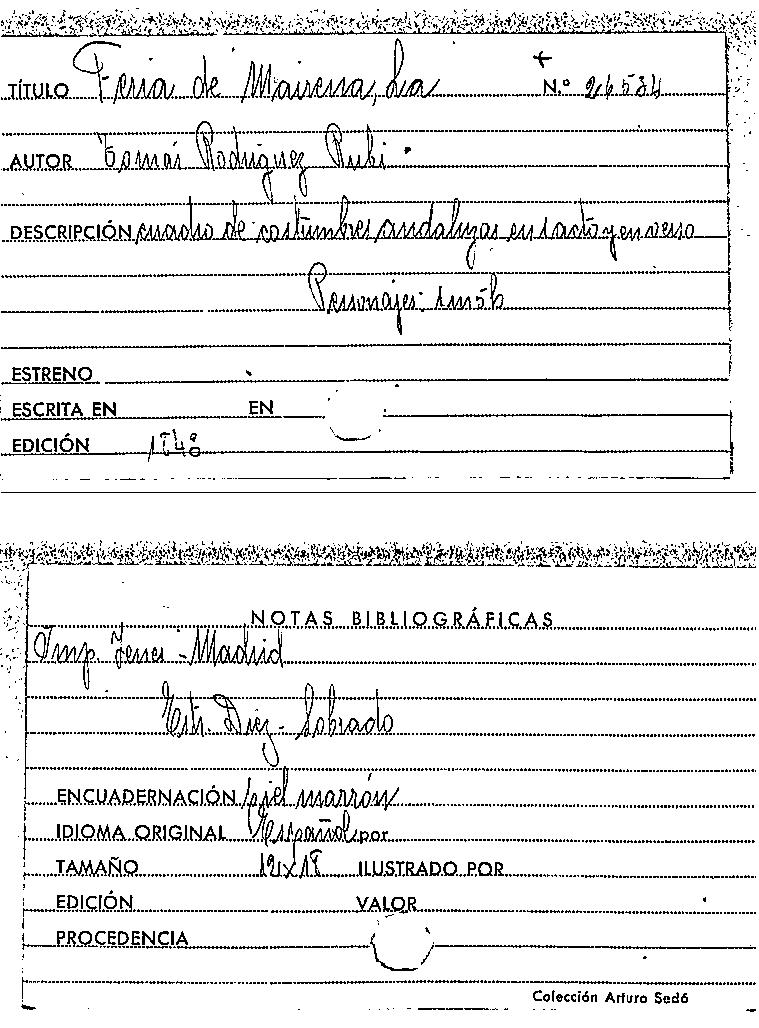 TÍTULO Feria de Mairena, La N.º 26534
AUTOR Tomás Rodriguez Rubi.
DESCRIPCIÓN cuadro de costumbres andaluzas en 1 acto y en verso
Personajes: 1m5h
ESTRENO
ESCRITA EN EN
EDICIÓN 1848
NOTAS BIBLIOGRÁFICAS
Imp. - Madrid
Estr. Diez - Sobrado
ENCUADERNACIÓN piel marrón
IDIOMA ORIGINAL Español por
TAMAÑO 12x18 ILUSTRADO POR
EDICIÓN VALOR
PROCEDENCIA
Colección Arturo Sedó